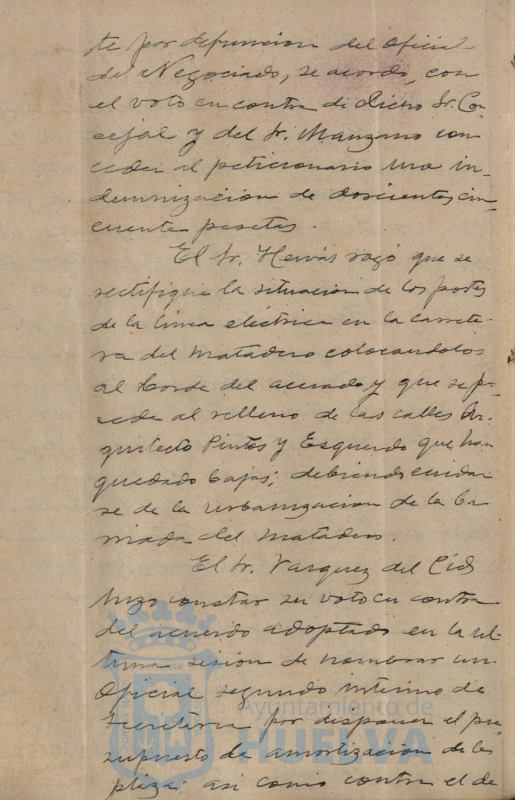 te por defuncion del Oficial
del Negociado, se acordo, con
el voto en contra di dicho Sr. Con
cejal y del Sr. Manzano con
ceder al peticionario una in-
demnizacion de doscientas cin-
cuenta pesetas.
El Sr. Hervás rogó que se
rectifique la situacion de los postes
de la linea electrica en la carrete-
ra del Matadero colocandolos
al borde del acerado y que se pro
ceda al relleno de las calles Ar-
quitecto Pintos y Esquerdo que han
quedado bajas; debiendo cuidar
se de la urbanizacion de la ba
rriada del Matadero.
El Sr. Vazquez del Cid
hizo constar su voto en contra
del acuerdo adoptado en la ul-
tima sesion de nombrar un
Oficial segundo interino de
Secretaria por disponer el pre
supuesto la amortizacion de la
plaza; asi como contra el de
Ayuntamiento de
HUELVA